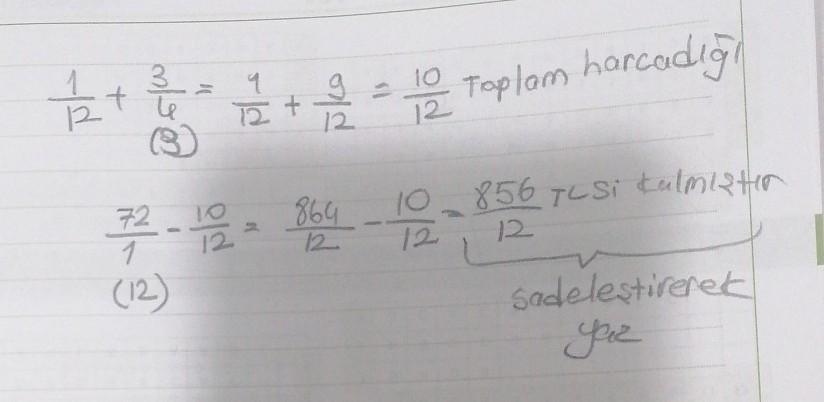 1/12 + 3/4 = 1/12 + 9/12 = 10/12 Toplam harcadığı
(3)
72/1 - 10/12 = 864/12 - 10/12 = 856/12 TLSi kalmıştır
(12)
sadeleştirerek
yaz